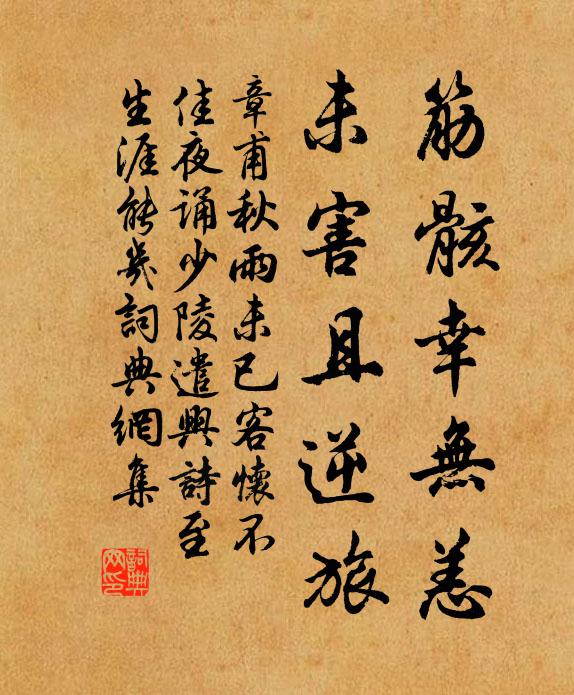 筋骸幸無恙
未害且逆旅
章甫秋雨未已客懷不
佳夜誦少陵遣興詩至
生涯能幾詞典網集
詞典网印